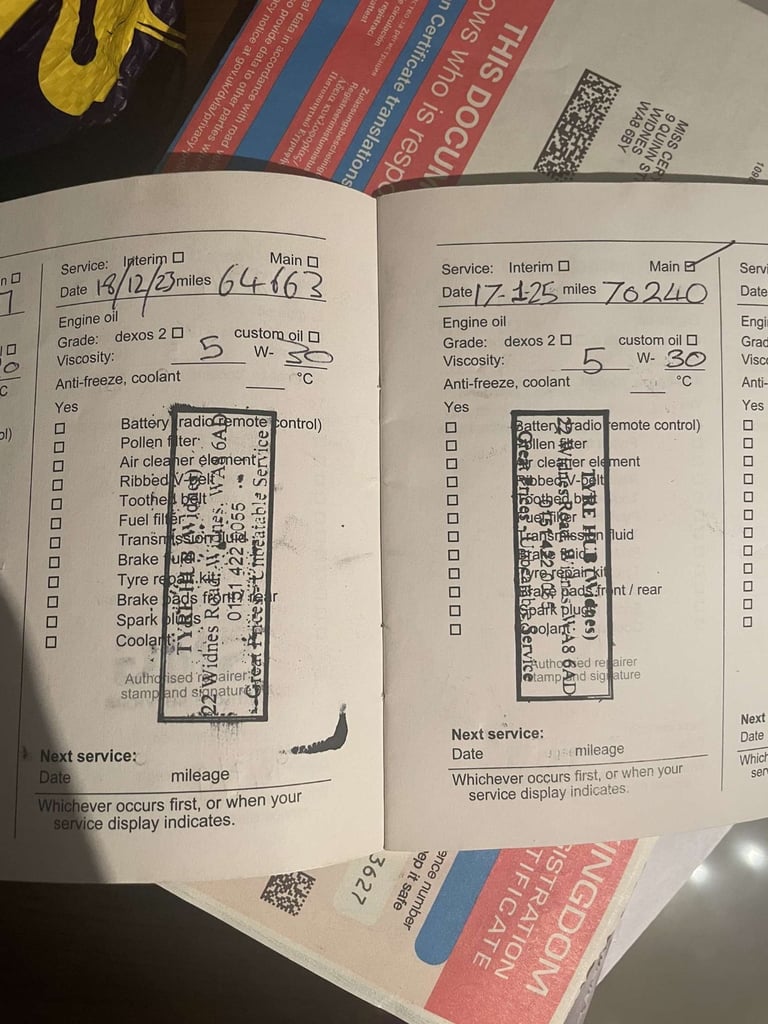 al data in accordance with road
o provide data to other parties w
cy notice at gov.uk/dvla/privacy
n Certificate translations
Zulassungsbescheinigung
THIS DOCUM
ows who is resp
MISS CER
9 QUINN ST
WIDNES
WA8 6BY
Service: Interim Main
Date 18/12/23 miles 64663
Engine oil
Grade: dexos 2 custom oil
Viscosity: 5 W- 30
Anti-freeze, coolant °C
Yes
Battery (radio remote control)
Pollen filter
Air cleaner element
Ribbed V-belt
Toothed belt
Fuel filter
Transmission fluid
Brake fluid
Tyre repair kit
Brake pads front / rear
Spark plugs
Coolant
Authorised repairer
stamp and signature
TYRE HUB (Widnes)
22 Widnes Road, Widnes, WA8 6AD
0151 422 0055
Great Prices - Unbeatable Service
Next service:
Date mileage
Whichever occurs first, or when your
service display indicates.
Service: Interim Main
Date 17-1-25 miles 70240
Engine oil
Grade: dexos 2 custom oil
Viscosity: 5 W- 30
Anti-freeze, coolant °C
Yes
Battery (radio remote control)
Pollen filter
Air cleaner element
Ribbed V-belt
Toothed belt
Fuel filter
Transmission fluid
Brake fluid
Tyre repair kit
Brake pads front / rear
Spark plugs
Coolant
Authorised repairer
stamp and signature
TYRE HUB (Widnes)
22 Widnes Road, Widnes, WA8 6AD
0151 422 0055
Great Prices - Unbeatable Service
Next service:
Date mileage
Whichever occurs first, or when your
service display indicates.
Servi
Date
Engi
Grad
Visc
Anti-
Yes
Next
Date
Which
ser
ence number
ep it safe
3627
INGDOM
ISTRATION
TIFICATE